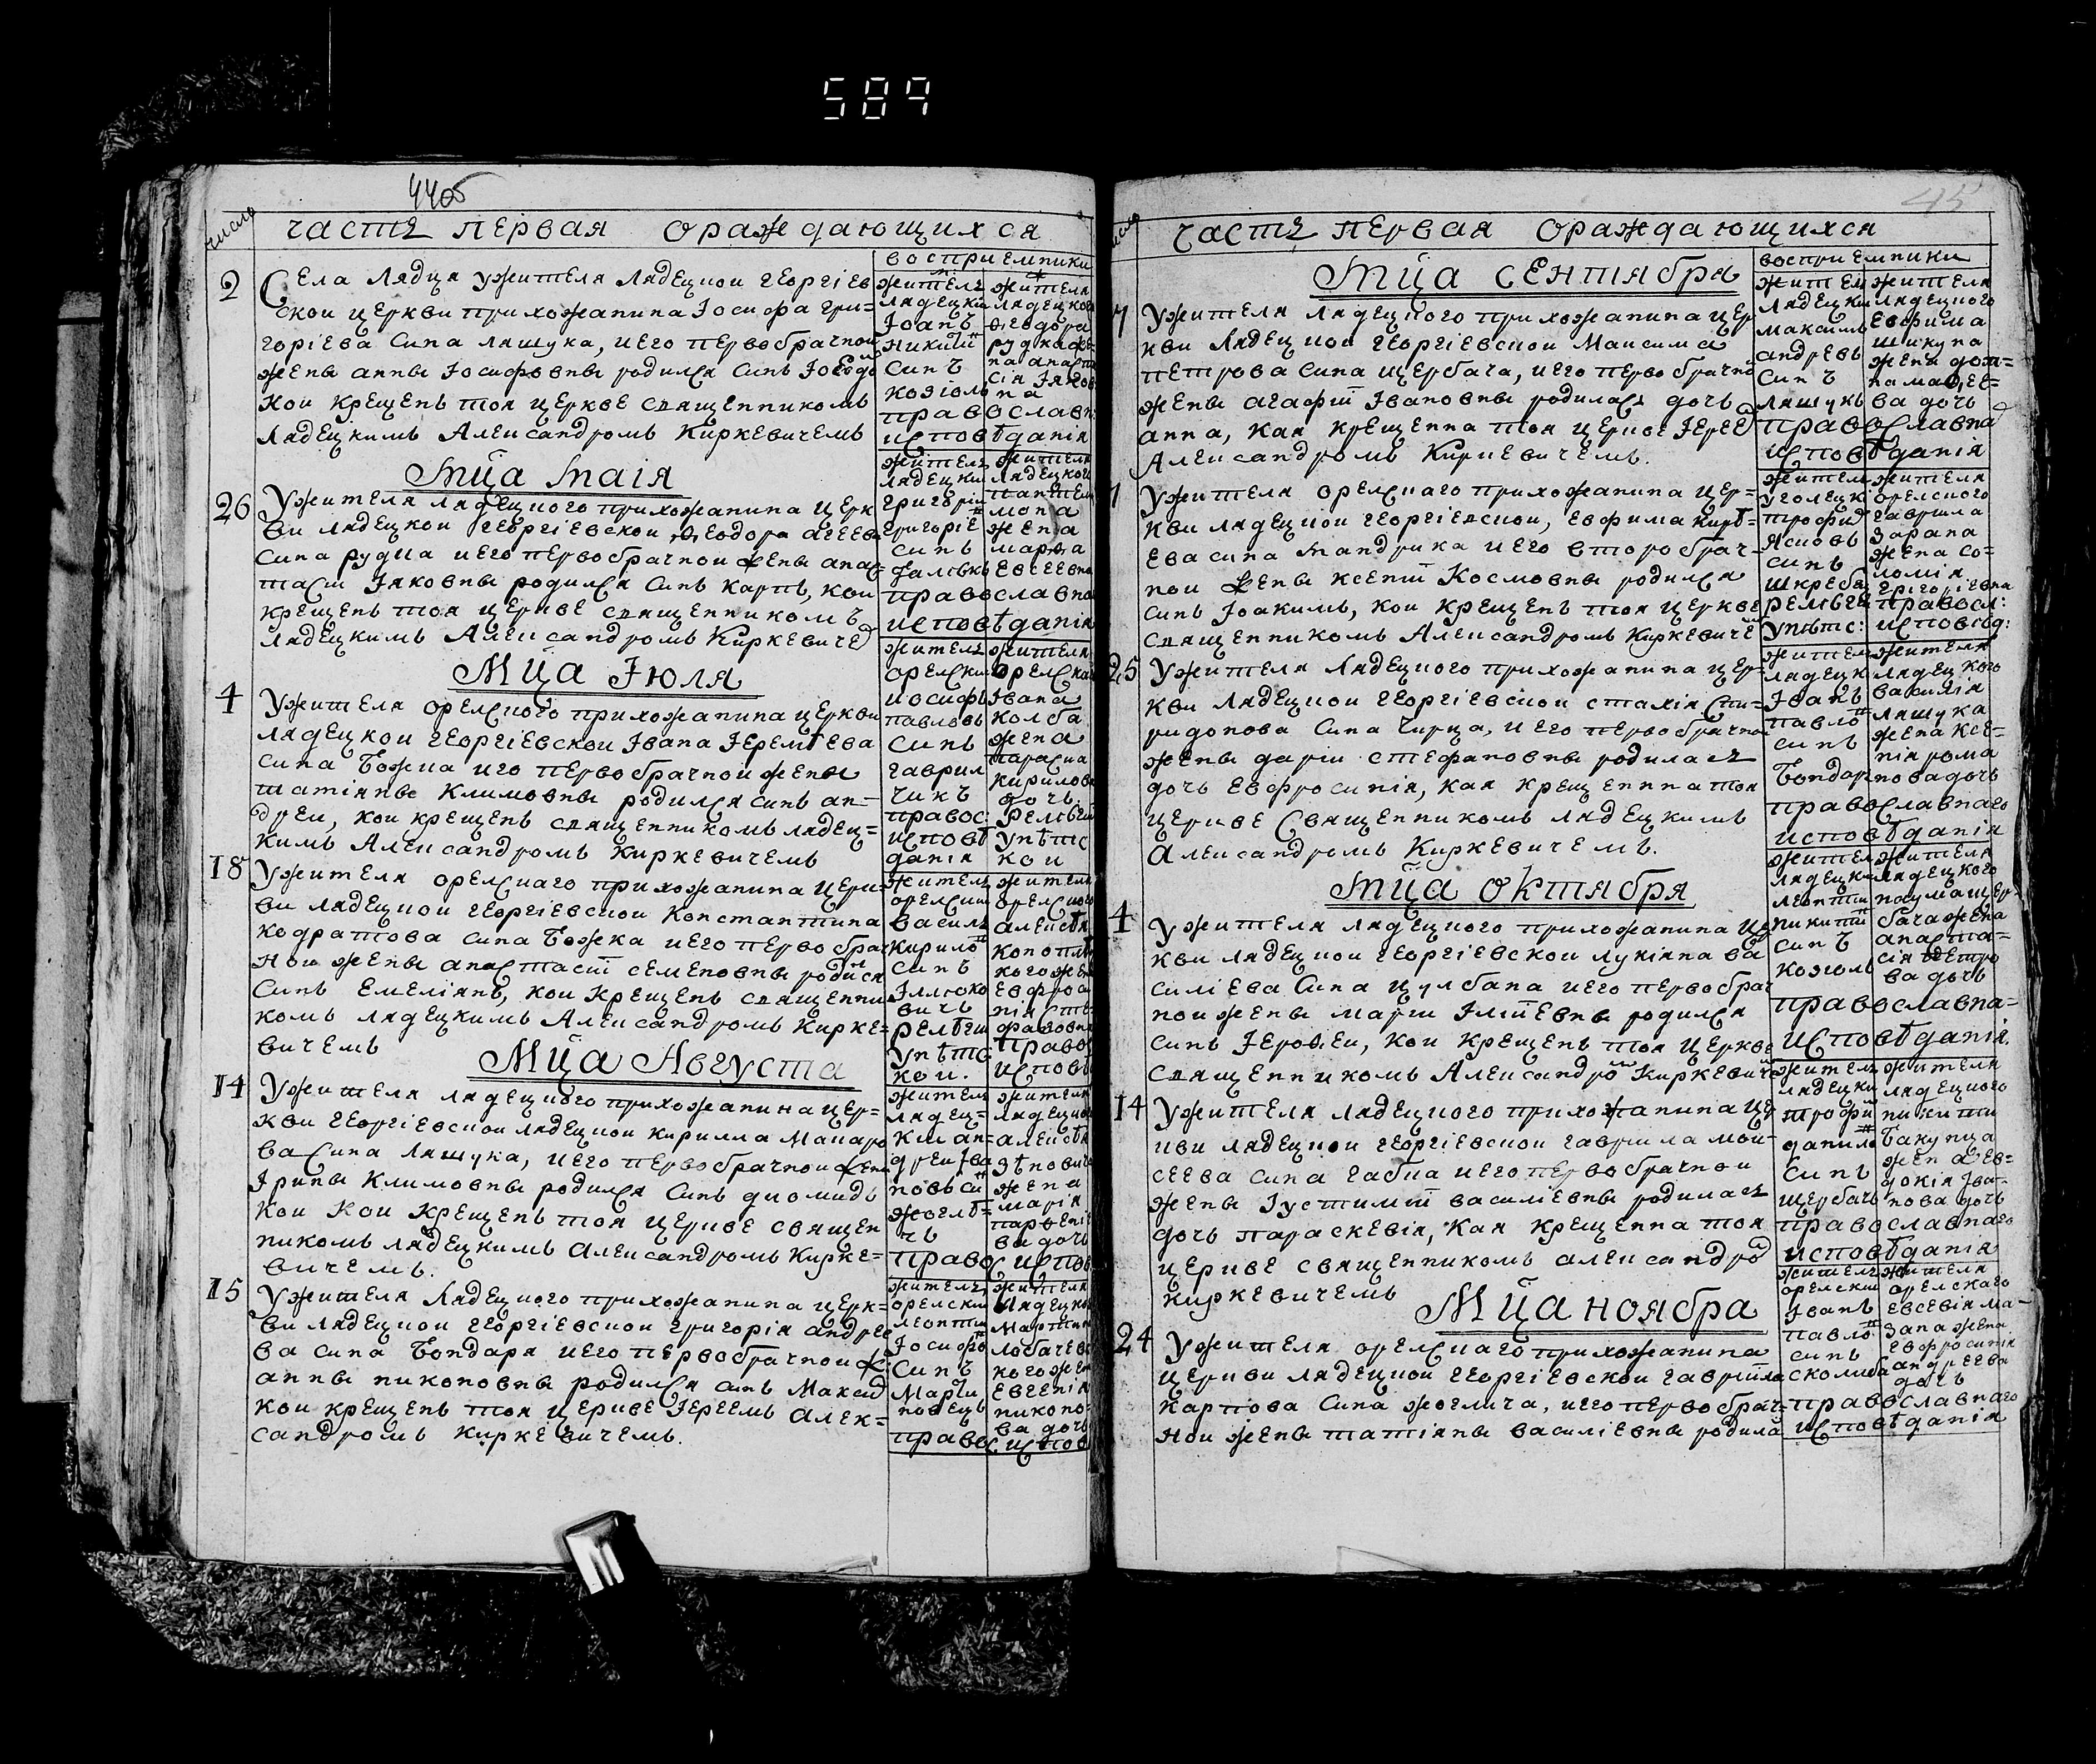 589
44об
число
часть первая ораждающихся
воспри емники
2
Села Лядца ужителя Лядецкои георгіев
скои церкви прихожанина Іосифа гри=
горіева сина ляшука, иего первобрачнои
жены анны Іосифовны родился синъ
кои крещенъ тоя церкве священникомъ
Лядецкимъ Александромъ Киркевичемъ
житель
лядецки
Іоанъ
никити
синъ
козюль
жителя
лядецкого
ѳеодора
рудка же=
на анаст
сія Іяков
на
православн:
исповѣданія
Мца маія
26
Ужителя лядецкого прихожанина церк
ви лядецкои георгіевскои ѳеодора агеева
сина рудка иего первобрачнои жены анас=
тасіи Іяковны родился синъ карпъ, кои
крещенъ тоя церкве священникомъ
лядецкимъ Александромъ Киркевиче
житель
лядецки
григорі
григоріе
синъ
жителя
лядецкого
пантеле
мона
жена
марѳа
евсеевна
православна
исповѣданія
Мца Іюля
4
Ужителя орелского прихожанина церкви
лядецкои георгіевскои Івана Іеремѣева
сина божка иго первобрачнои жены
татіяны климовны родился синъ ан=
дреи, кои крещенъ священникомъ лядец=
кимъ Александромъ киркевичемъ
житель
орелски
иосифъ
павловъ
синъ
гаврил
чикъ
правос:
исповѣ
данія
жителя
орелска
Івана
колба
жена
параска
кирилова
дочь
релѣгеи
унѣтс
кои
18
Ужителя орелскаго прихожанина церк=
ви лядецкои георгіевскои константина
кодратова сина божка иего первобрач
нои жены анастасіи семеновны родися
синъ емеліянъ, кои крещенъ священни
комъ лядецкимъ Александромъ кирке=
вичемъ
житель
орелски
василь
кирило
синъ
Іллюко
вичь
релѣги
унѣтс
кои.
жителя
орелского
алексѣя
конопл
кого жен
евфрос
право
исповѣ
Мца Августа
14
Ужителя лядецкого прихожанина цер=
кви георгіевскои лядецкои кирилла макаро
ва сина ляшука, иего первобрачнои жены
Ірины климовны родился синъ диомидъ
кои кои крещенъ тоя церкве священ
никомъ лядецкимъ александромъ кирке=
вичемъ.
житель
лядец=
ки ан=
дреи Іва
новъ си
жоглѣ=
чь
жителя
лядецко
алексѣя
жена
марія
парѳені
ва дочь
право испов
15
Ужителя Лядецкого прихожанина церк=
ви лядецкои георгіевскои григорія андрее
ва сина бондаря иего первобрачнои ж:
анны никоновны родился синъ Макси
кои крещенъ тоя церкве Іереемъ алек=
сандромъ киркевичемъ.
житель
орелски
леонти
Іосифо
синъ
марти
новець
жителя
лядецко
мартин
лобачев
кого жен
евгенія
никоно
ва дочь
право испов
45
часть первая ораждающихся
воспри емники
Мца сентября
7
Ужителя лядецкого прихожанина цер
кви лядецкои георгіевскои максима
петрова сина щербача, иего первобрачно
жены агафіи Івановны родилась дочь
анна, кая крещенна тоя церкве Іерее
Александромъ киркевичемъ.
жител
лядецки
максимъ
андреевъ
синъ
ляшукъ
жителя
лядецкого
евфима
шикуна
жена дом=
на матѳее=
ва дочь
православна
исповѣданія
Ужителя орелскаго прихожанина цер=
кви лядецкои георгіевскои, евфима кирѣ=
ева сина мандрика иего второбрач=
нои жены ксеніи космовны родился
синъ Іоакимъ, кои крещенъ тоя церкве
священникомъ Александромъ Киркевиче
жител
уголецкі
трофи
яковъ
синъ
шкреба
релѣгеи
унѣтс:
жителя
орелского
гаврила
зарана
жена со=
ломія
григоріевна
правосл:
исповѣд:
25
Ужителя Лядецкого прихожанина цер=
кви лядецкои георгіевскои стахія спи=
ридонова сина гирца, иего первобрачнои
жены даріи стефановны родилась
дочь евфросинія, кая крещенна тоя
церкве священникомъ лядецкимъ
александромъ Киркевичемъ.
жител
лядецки
Іванъ
павло
синъ
бондар
жителя
лядецкого
василія
ляшука
жена ксе=
нія рома
нова дочь
православнаго
исповѣданія
Мца октября
4
Ужителя лядецкого прихожанина це
кви лядецкои георгіевскои лукіяна ва
силіева сина цулбана иего первобрач
нои жены маріи Іліиевны родился
синъ Іероѳеи, кои крещенъ тоя церкве
священникомъ Александро Киркевиче
жител
лядецки
леонти
никити
синъ
козюль
жителя
лядецкого
наума щер=
бача жена
анаста=
сія петро
ва дочь
православна=
исповѣданія.
14
Ужителя лядецкого прихожанина це
кви лядецкои георгіевскои гаврила мои=
сеева сина бабца иего первобрачнои
жены Іустиміи василіевны родилась
дочь параскевія, кая крещенна тоя
церкве священникомъ александро
киркевичемъ
житель
лядецки
трофи
данило
синъ
щербачь
жителя
лядецкого
никити
бакунца
жена ев=
докія Іва=
нова дочь
православнаго
исповѣданія
Мца ноября
24
Ужителя орелскаго прихожанина
церкви лядецкои георгіевскои гавриила
карпова сина жоглича, иего первобрач=
нои жены татіяны василіевны родила
житель
орелски
Іванъ
павло
синъ
сколиба
жителя
орелскаго
евсевія ма=
зана жена
евфросинія
андреева
дочь
православнаго
исповѣданія